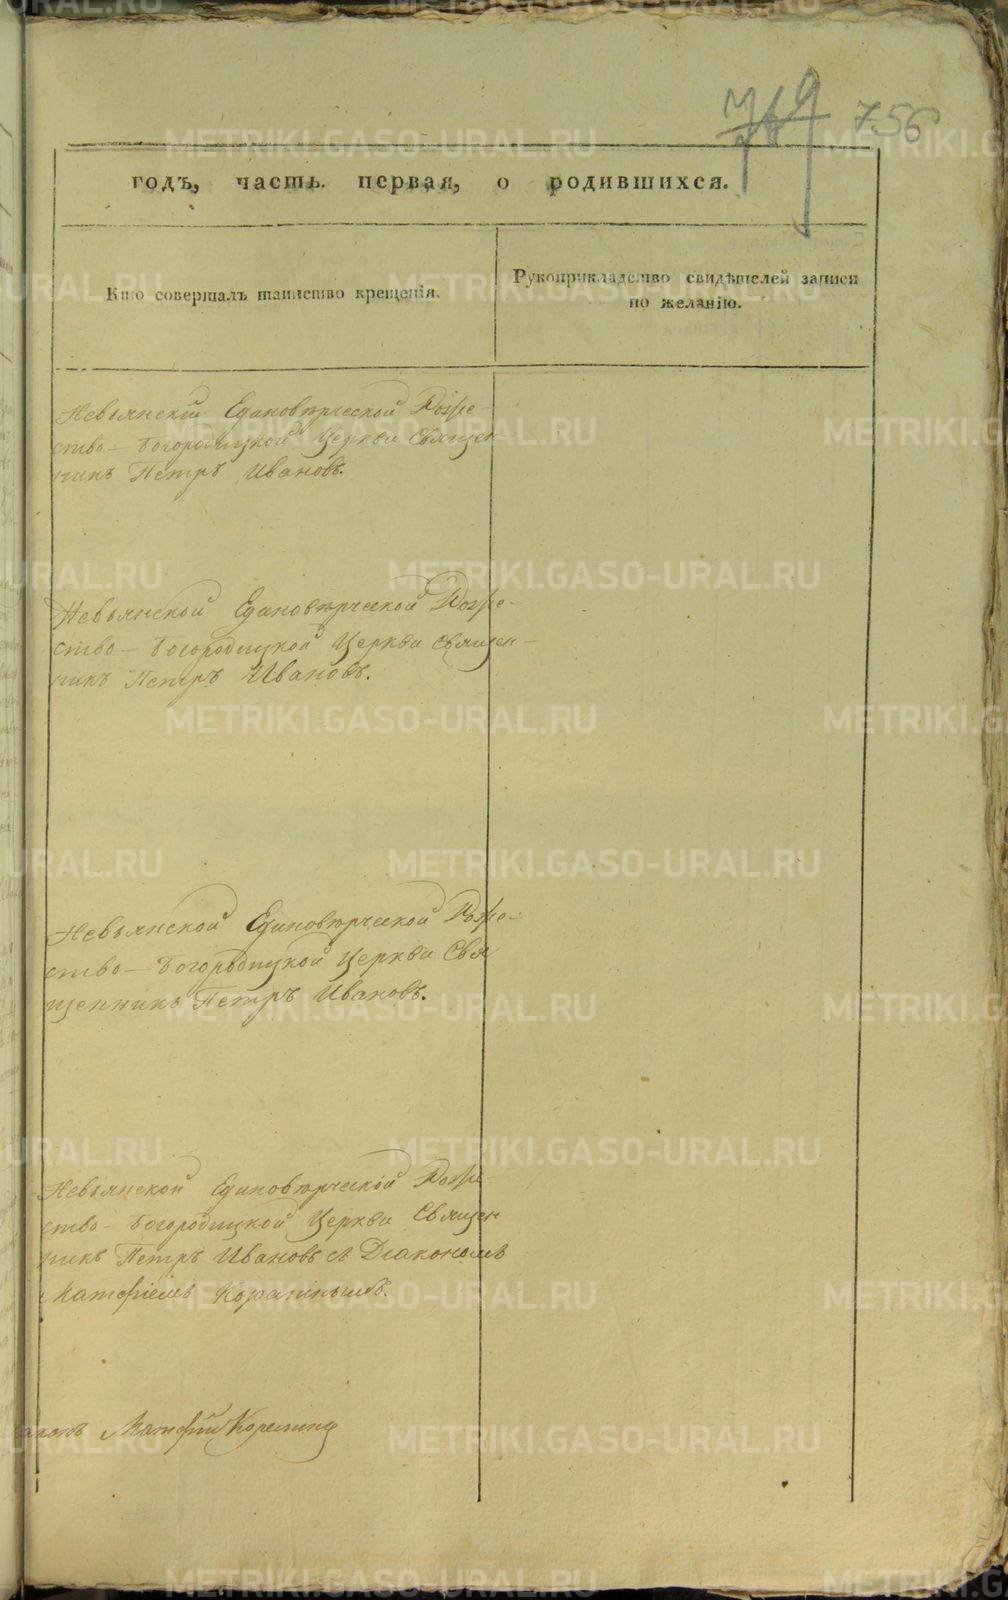 756
годъ, часть первая, о родившихся.
Кто совершалъ таинство крещенія.
Рукоприкладство свидѣтелей записи
по желанію.
Невьянской Единовѣрческой Рожде-
ство-Богородицкой Церкви Священ
никъ Петръ Ивановъ.
Невьянской Единовѣрческой Рожде-
ство-Богородицкой Церкви Священ-
никъ Петръ Ивановъ.
Невьянской Единовѣрческой Рожде-
ство-Богородицкой Церкви Свя
щенникъ Петръ Ивановъ.
Невьянской Единовѣрческой Рожде-
ство-Богородицкой Церкви Священ
никъ Петръ Ивановъ съ Діакономъ
Матѳіемъ
Матѳій Корелинъ
METRIKI.GASO-URAL.RU